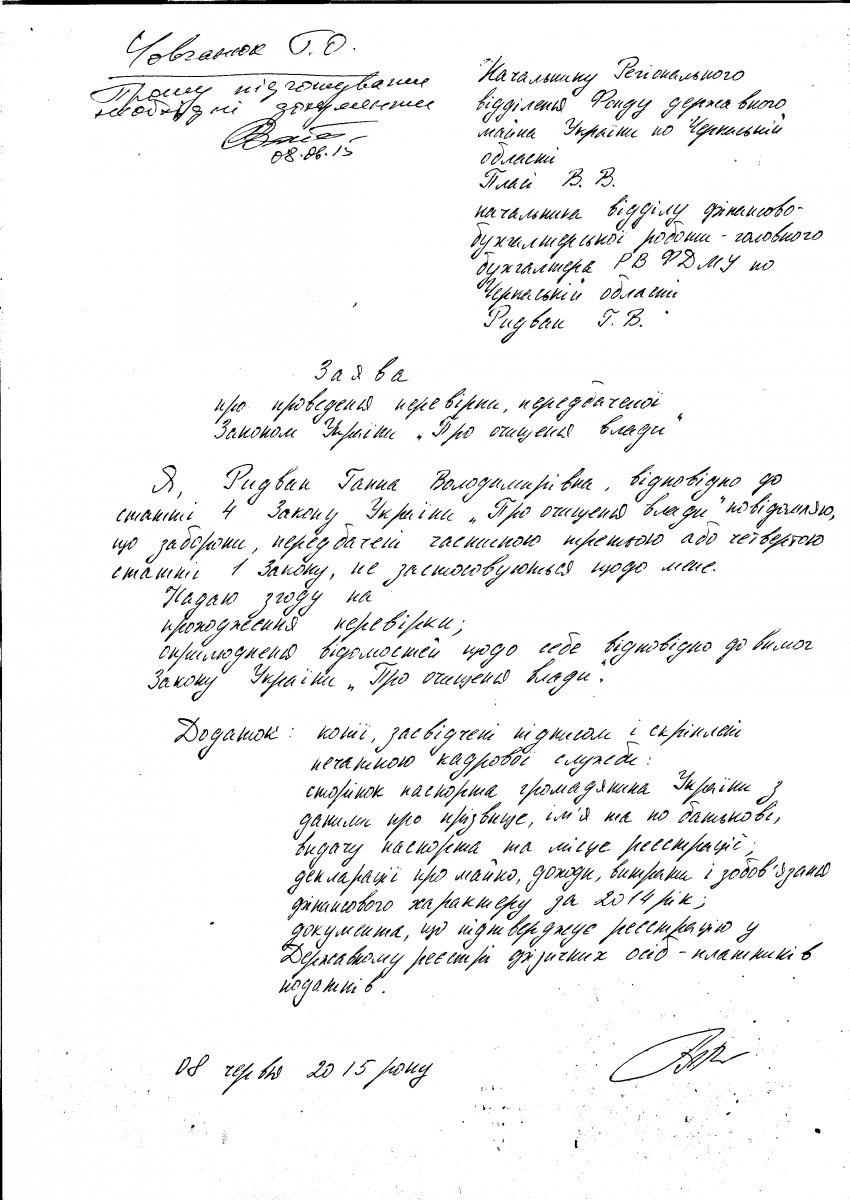 Човганюк Г.О.
Прошу підготувати
необхідні документи
08.06.15
Начальнику Регіонального
відділення Фонду державного
майна України по Черкаській
області
Пласі В. В.
начальника відділу фінансово-
бухгалтерської роботи - головного
бухгалтера РВ ФДМУ по
Черкаській області
Ридван Г. В.
Заява
про проведення перевірки, передбаченої
Законом України „Про очищення влади"
Я, Ридван Ганна Володимирівна, відповідно до
статті 4 Закону України „Про очищення влади" повідомляю,
що заборони, передбачені частиною третьою або четвертою
статті 1 Закону, не застосовуються щодо мене.
Надаю згоду на
проходження перевірки;
оприлюднення відомостей щодо себе відповідно до вимог
Закону України „Про очищення влади".
Додаток: копії, засвідчені підписом і скріплені
печаткою кадрової служби:
сторінок паспорта громадянина України з
даними про прізвище, ім'я та по батькові,
видачу паспорта та місце реєстрації;
декларації про майно, доходи, витрати і зобов'язання
фінансового характеру за 2014 рік;
документа, що підтверджує реєстрацію у
Державному реєстрі фізичних осіб - платників
податків.
08 червня 2015 року